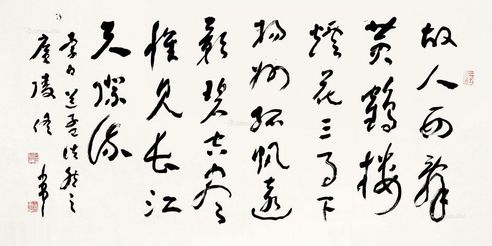 故人西辭
黄鶴樓
煙花三月下
揚州孤帆遠
影碧空盡
惟見長江
天際流
李白送孟浩然之
廣陵